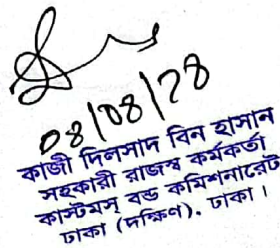 ০৪/০৪/২৪
কাজী দিলসাদ বিন হাসান
সহকারী রাজস্ব কর্মকর্তা
কাস্টমস্ বন্ড কমিশনারেট
ঢাকা (দক্ষিণ), ঢাকা।